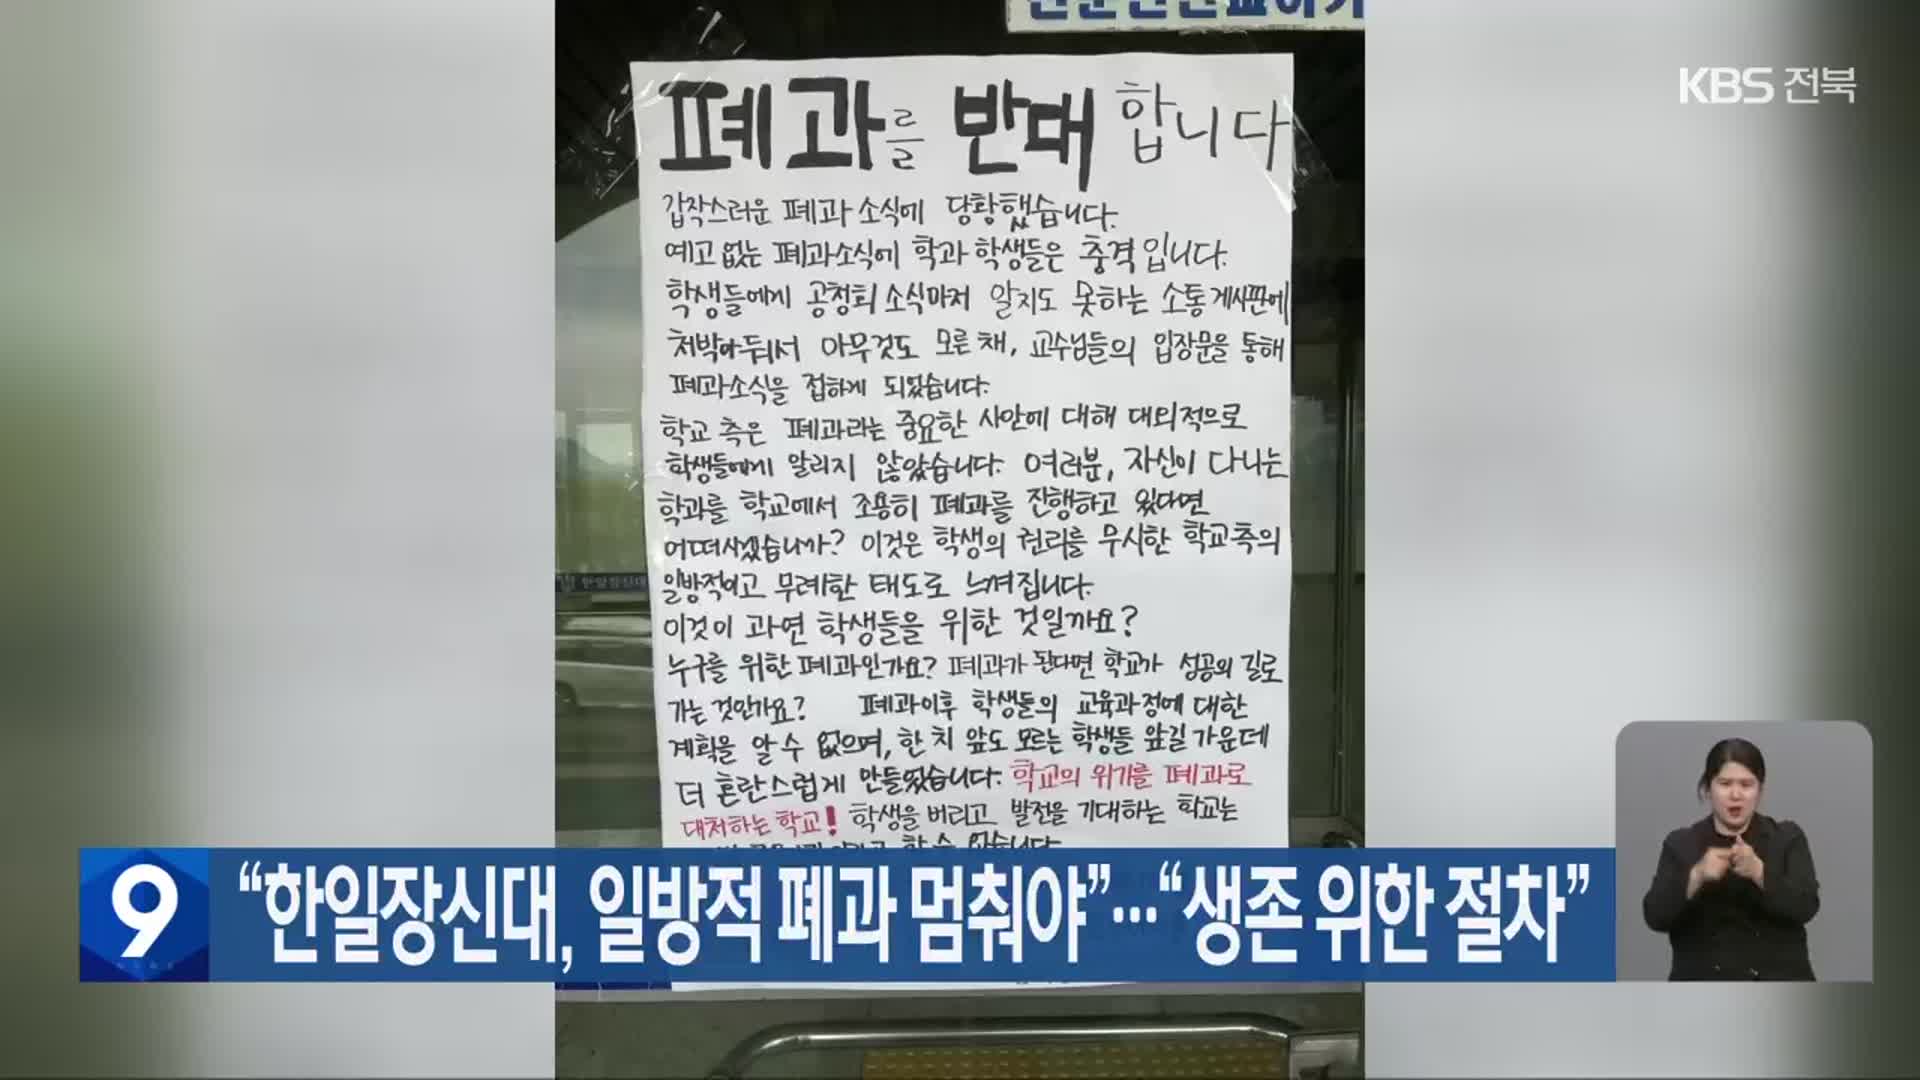 KBS 전북
폐과를 반대합니다
갑작스러운 폐과 소식에 당황했습니다.
예고 없는 폐과소식에 학과 학생들은 충격입니다.
학생들에게 공청회 소식마저 알지도 못하는 소통게시판에
처박아둬서 아무것도 모른 채, 교수님들의 입장문을 통해
폐과소식을 접하게 되었습니다.
학교 측은 폐과라는 중요한 사안에 대해 대외적으로
학생들에게 알리지 않았습니다. 여러분, 자신이 다니는
학과를 학교에서 조용히 폐과를 진행하고 있다면
어떠시겠습니까? 이것은 학생의 권리를 무시한 학교측의
일방적이고 무례한 태도로 느껴집니다.
이것이 과연 학생들을 위한 것일까요?
누구를 위한 폐과인가요? 폐과가 된다면 학교가 성공의 길로
가는 것인가요? 폐과이후 학생들의 교육과정에 대한
계획을 알 수 없으며, 한 치 앞도 모르는 학생들 앞길 가운데
더 혼란스럽게 만들었습니다. 학교의 위기를 폐과로
대처하는 학교! 학생을 버리고 발전을 기대하는 학교는
할 수 없습니다.
한일장신대
9
“한일장신대, 일방적 폐과 멈춰야”…“생존 위한 절차”